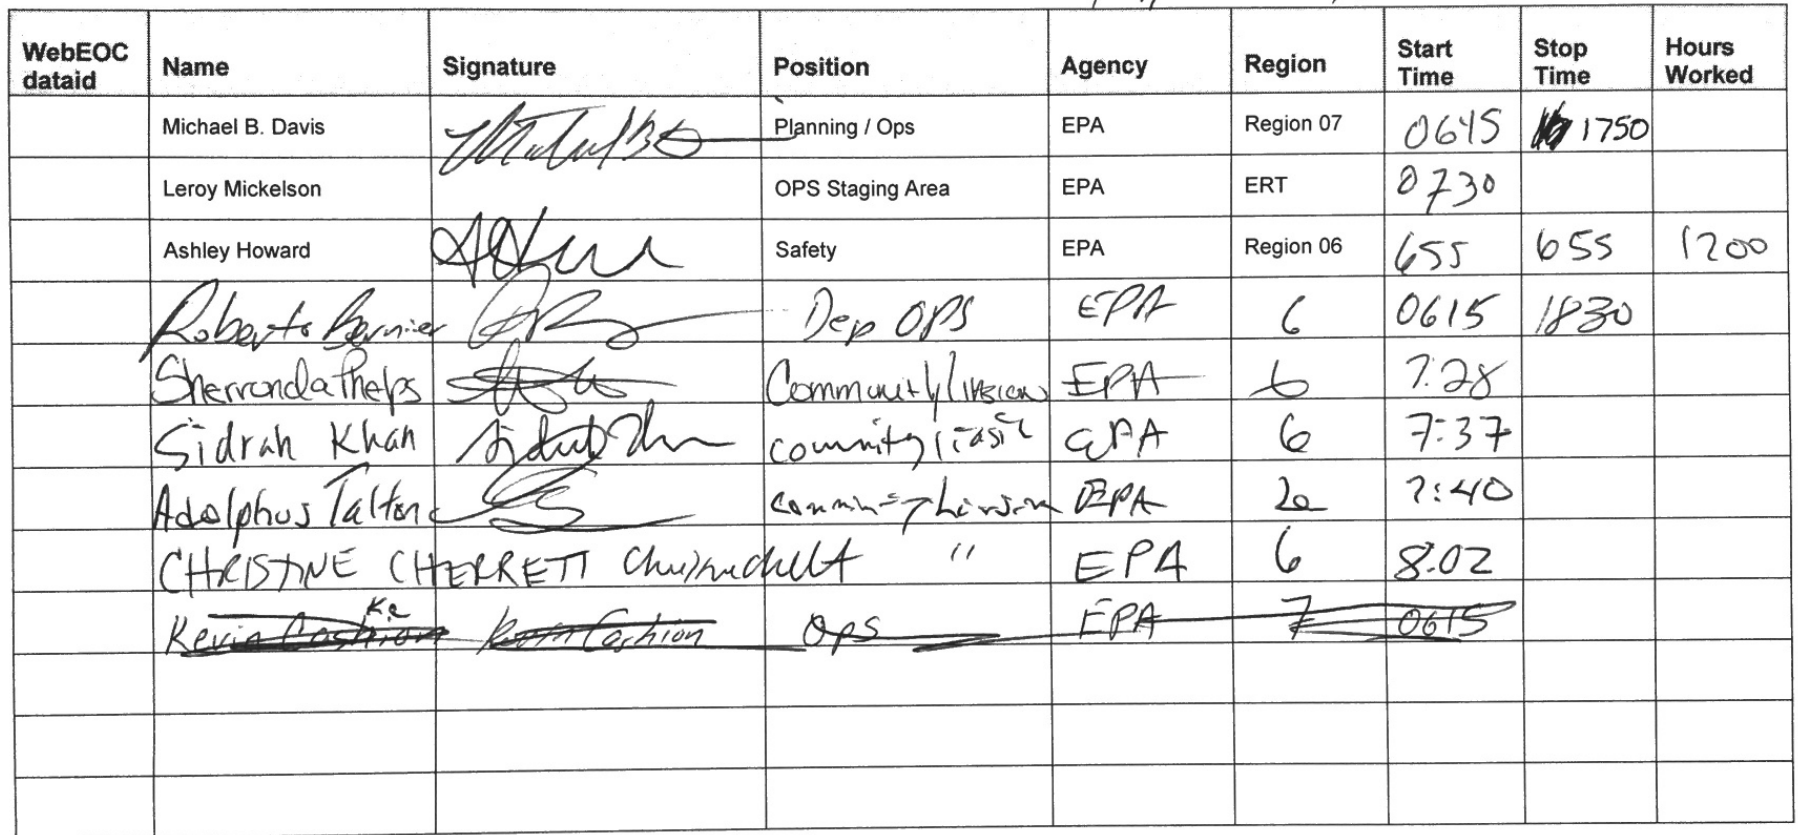 WebEOC dataid Name Signature Position Agency Region Start Time Stop Time Hours Worked
Michael B. Davis Planning / Ops EPA Region 07 0645 1750
Leroy Mickelson OPS Staging Area EPA ERT 0730
Ashley Howard Safety EPA Region 06 655 655 1200
Roberto Bernier Dep OPS EPA 6 0615 1830
Sherronda Phelps Community EPA 6 7:28
Sidrah Khan EPA 6 7:37
Adolphus Talton EPA 7:40
CHRISTINE CHERRETT " EPA 6 8:02
Kevin Cashion Kc Kevin Cashion Ops EPA 7 0615